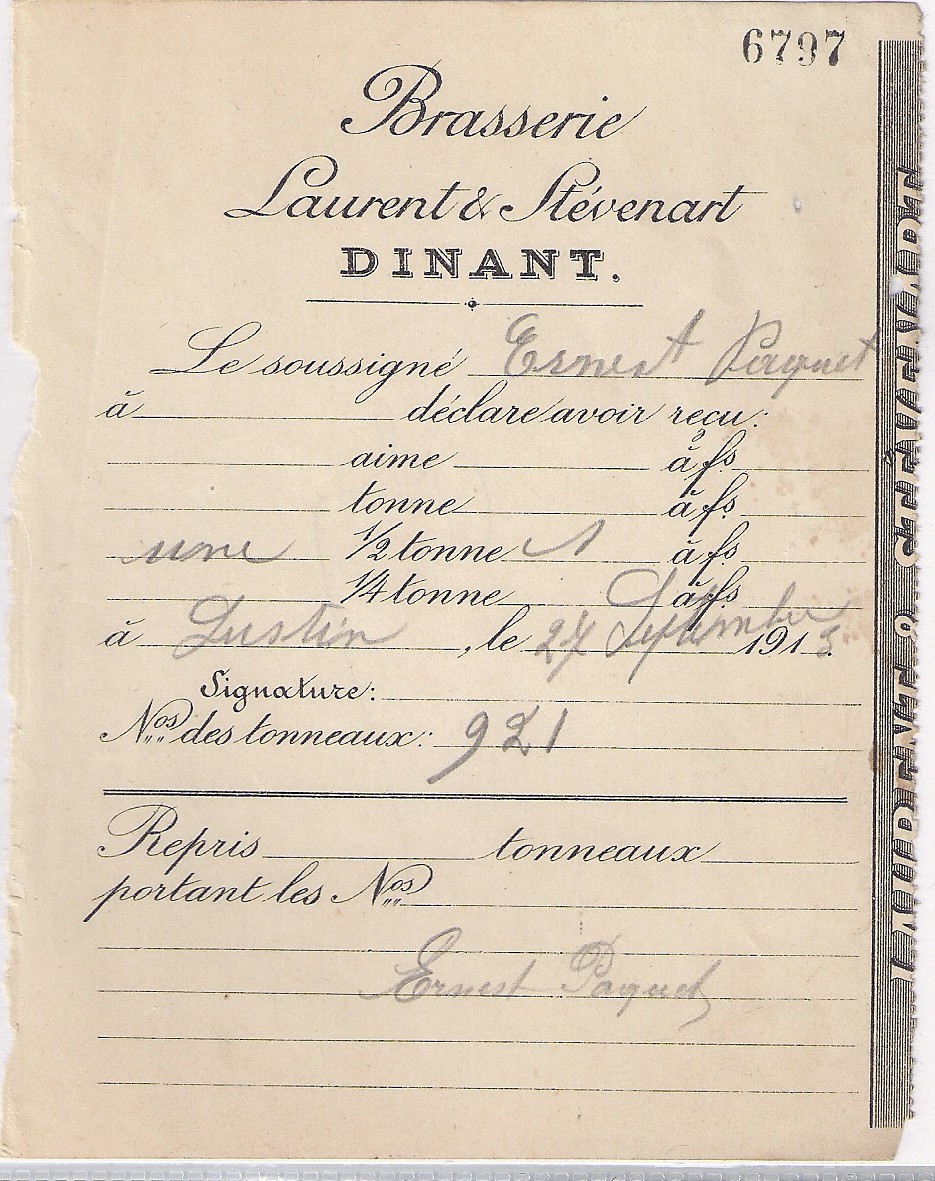 6797
Brasserie
Laurent & Stévenart
DINANT.
Le soussigné Ernest Paquet
à déclare avoir reçu:
aime à fs.
tonne à fs.
une 1/2 tonne 1 à fs.
1/4 tonne à fs.
à Lustin, le 27 Septembre 1913
Signature:
Nos des tonneaux: 921
Repris tonneaux
portant les Nos
Ernest Paquet
LAURENT & STÉVENART